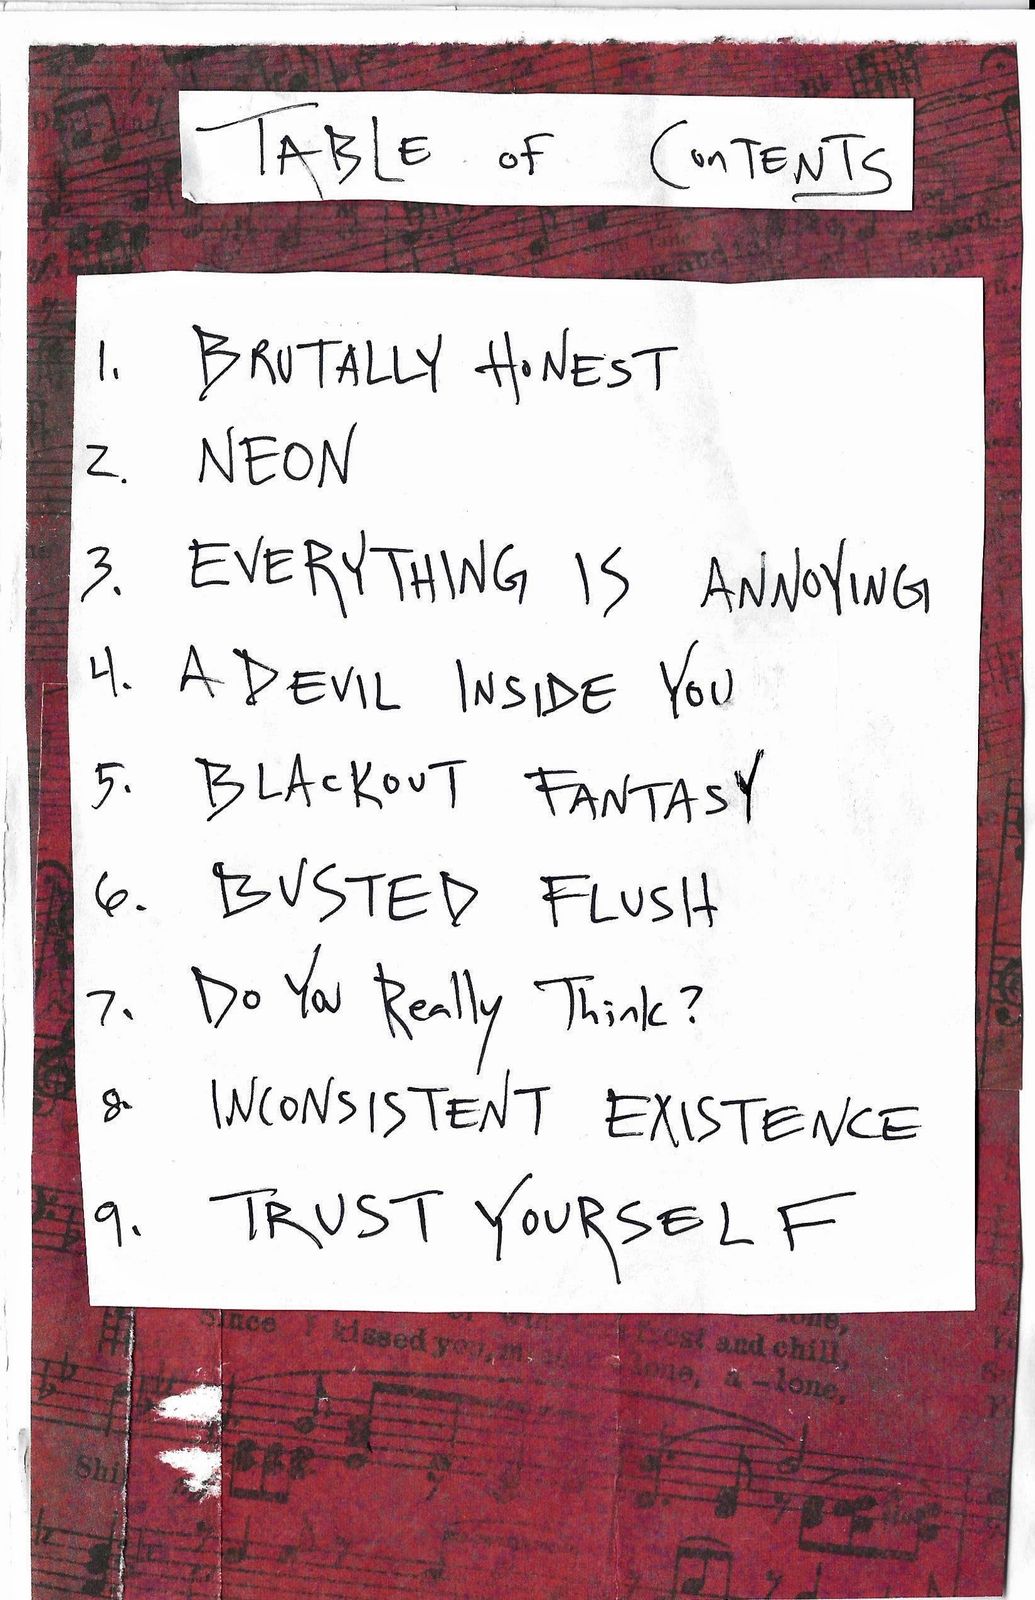 TABLE OF CONTENTS
1. BRUTALLY HONEST
2. NEON
3. EVERYTHING IS ANNOYING
4. A DEVIL INSIDE YOU
5. BLACKOUT FANTASY
6. BUSTED FLUSH
7. Do You Really Think?
8. INCONSISTENT EXISTENCE
9. TRUST YOURSELF
Since I kissed you, frost and chill,
lone, a-lone,
Shi